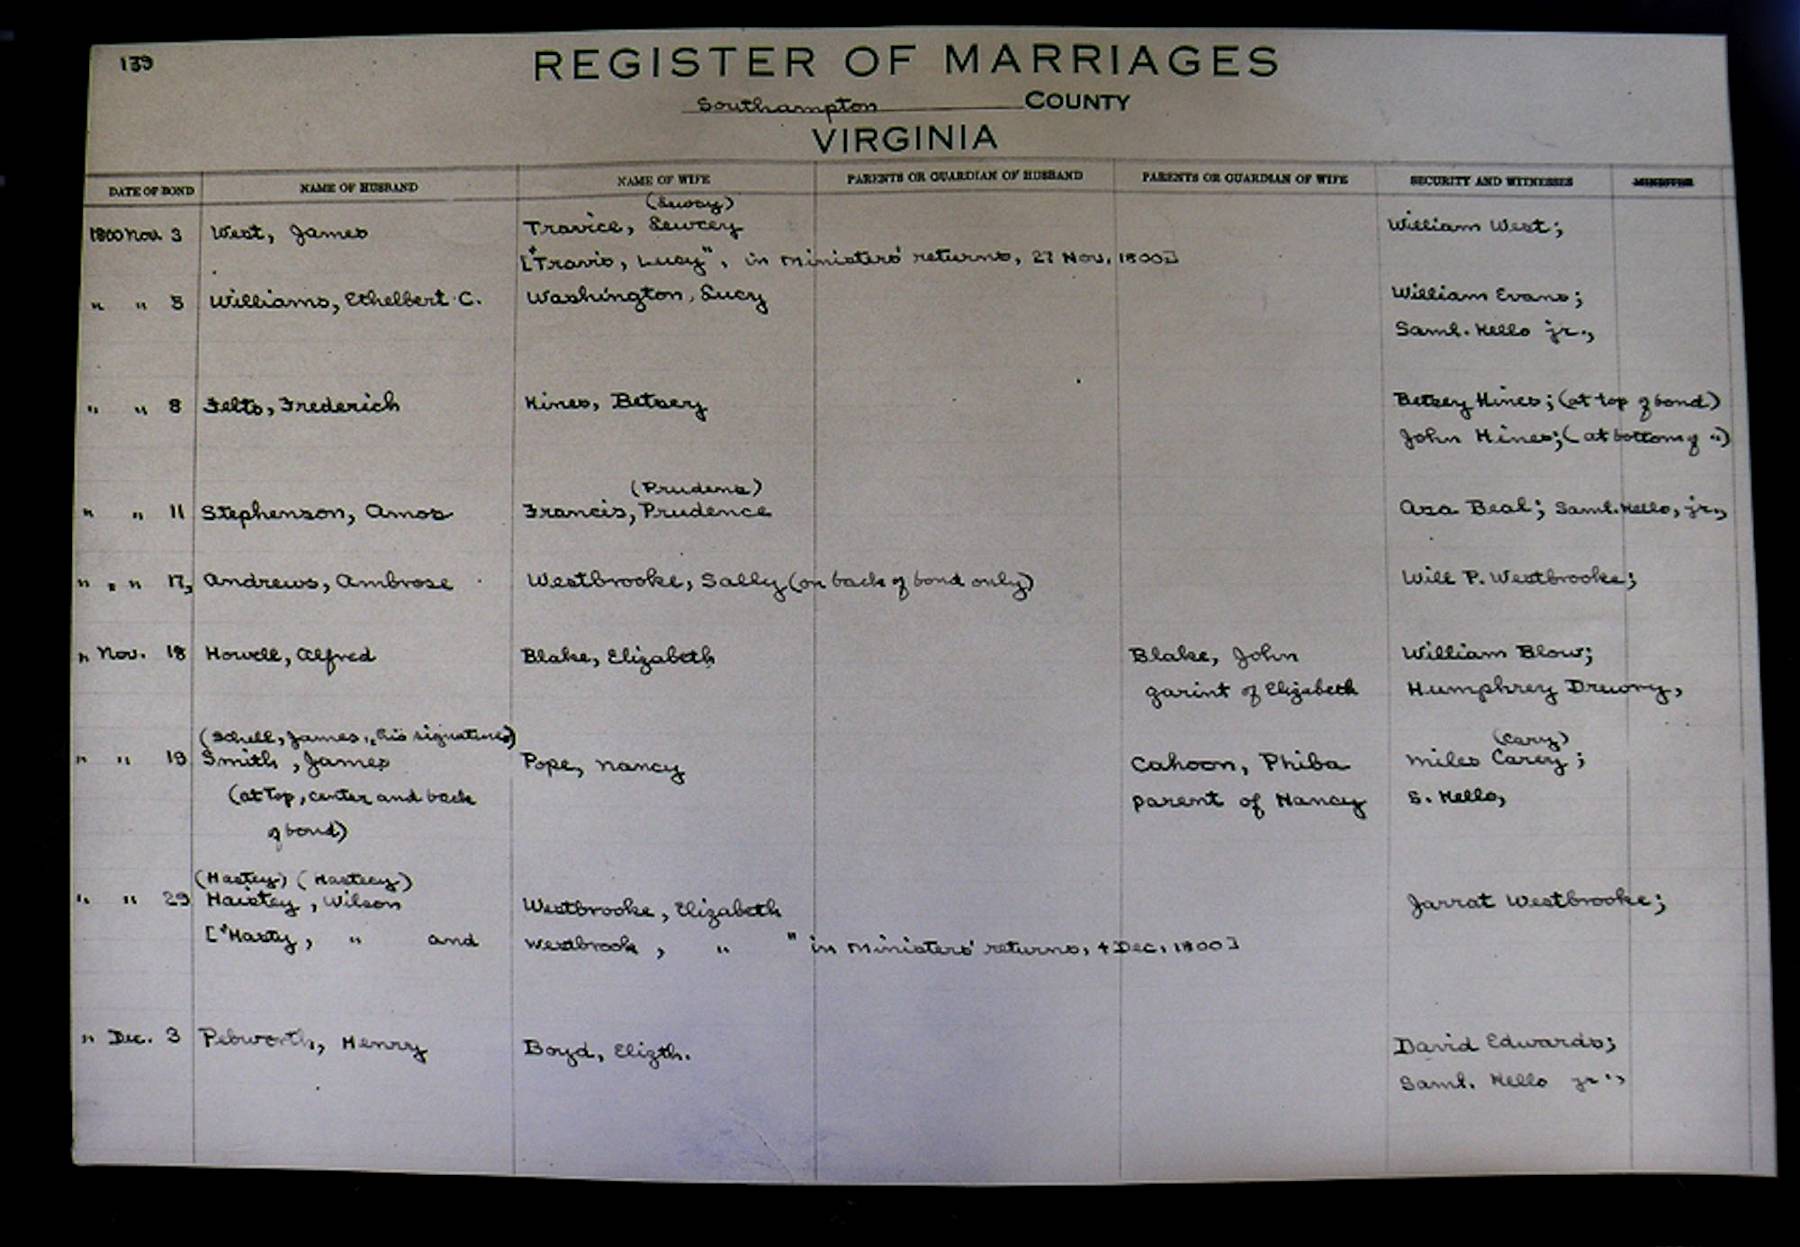 139
REGISTER OF MARRIAGES
Southampton COUNTY
VIRGINIA
DATE OF BOND NAME OF HUSBAND NAME OF WIFE PARENTS OR GUARDIAN OF HUSBAND PARENTS OR GUARDIAN OF WIFE SECURITY AND WITNESSES MINISTER
1800 Nov. 3 West, James Travice, Lewcey William West;
["Travis, Lucy", in Ministers' returns, 27 Nov. 1800]
" " 5 Williams, Ethelbert C. Washington, Lucy William Evans;
Saml. Kello jr.,
" " 8 Felts, Frederich Hines, Betsey Betsey Hines; (at top of bond)
John Hines; (at bottom of ")
(Prudens)
" " 11 Stephenson, Amos Francis, Prudence Asa Beal; Saml. Kello, jr.,
" " " 17, Andrews, Ambrose Westbrooke, Sally (on back of bond only) Will P. Westbrooke;
" Nov. 18 Howell, Alfred Blake, Elizabeth Blake, John William Blow;
garint of Elizabeth Humphrey Drewry,
(Schell, James, his signature) (Cary)
" " 19 Smith, James Pope, Nancy Cahoon, Phiba Miles Carey;
(at top, center and back parent of Nancy S. Kello,
of bond)
(Hastey) (Hasteey)
" " 29 Haistey, Wilson Westbrooke, Elizabeth Jarrat Westbrooke;
["Hasty, " and Westbrook, " " in Ministers' returns, 4 Dec. 1800]
" Dec. 3 Pebworth, Henry Boyd, Elizth. David Edwards;
Saml. Kello jr.,